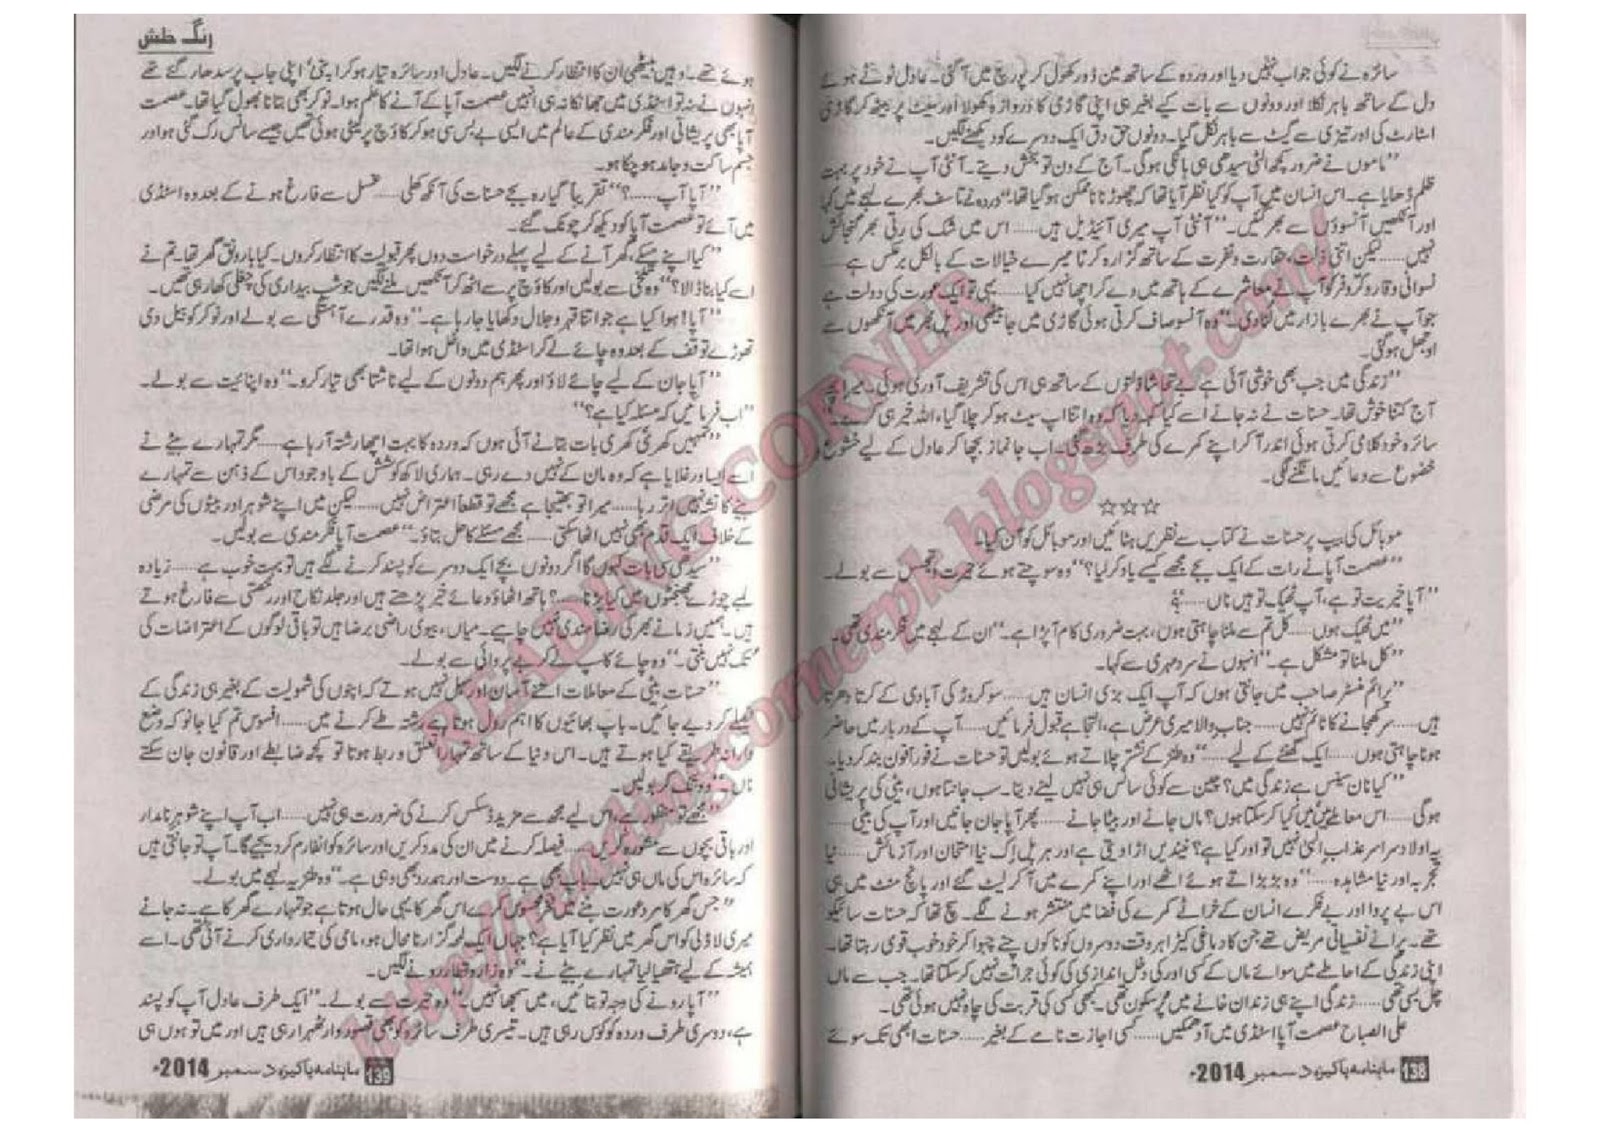 سائرہ نے کوئی جواب نہیں دیا اور وردہ کے ساتھ مین ڈور کھول کر پورچ میں آ گئی۔ عادل ٹوٹے ہوئے
دل کے ساتھ باہر نکلا اور دونوں سے بات کیے بغیر ہی اپنی گاڑی کا دروازہ کھولا اور سیٹ پر بیٹھ کر گاڑی
اسٹارٹ کی اور تیزی سے گیٹ سے باہر نکل گیا۔ دونوں حق دق ایک دوسرے کو دیکھنے لگیں۔
”ماموں نے ضرور کچھ الٹی سیدھی ہی ہانکی ہوگی۔ آج کے دن تو بخش دیتے۔ آنٹی آپ نے خود پر بہت
ظلم ڈھایا ہے۔ اس انسان میں آپ کو کیا نظر آیا تھا کہ چھوڑنا ناممکن ہو گیا تھا۔“ وردہ نے تاسف بھرے لہجے میں کہا
اور آنکھیں آنسوؤں سے بھر گئیں۔ ”آنٹی آپ میری آئیڈیل ہیں...... اس میں شک کی رتی بھر گنجائش
نہیں...... لیکن اتنی ذلت، حقارت و نفرت کے ساتھ گزارہ کرنا میرے خیالات کے بالکل برعکس ہے......
نسوانی وقار و کروفر کو آپ نے معاشرے کے ہاتھ میں دے کر اچھا نہیں کیا...... یہی تو ایک عورت کی دولت ہے
جو آپ نے بھرے بازار میں لٹا دی۔“ وہ آنسو صاف کرتی ہوئی گاڑی میں جا بیٹھی اور پل بھر میں آنکھوں سے
اوجھل ہو گئی۔
”زندگی میں جب بھی خوشی آئی ہے بے تحاشا ذلتوں کے ساتھ ہی اس کی تشریف آوری ہوئی۔ میرا بچہ
آج کتنا خوش تھا۔ حسنات نے نہ جانے اسے کیا کہہ دیا کہ وہ اتنا اپ سیٹ ہو کر چلا گیا، اللہ خیر ہی کرے۔“
سائرہ خود کلامی کرتی ہوئی اندر آ کر اپنے کمرے کی طرف بڑھ گئی۔ اب جا نماز بچھا کر عادل کے لیے خشوع
خضوع سے دعائیں مانگنے لگی۔
☆☆☆
موبائل کی بیپ پر حسنات نے کتاب سے نظریں ہٹائیں اور موبائل کو آن کیا۔
”عصمت آپا نے رات کے ایک بجے مجھے کیسے یاد کر لیا؟“ وہ سوچتے ہوئے حیرت و تجسس سے بولے۔
”آپا خیریت تو ہے، آپ ٹھیک تو ہیں ناں......؟“
”میں ٹھیک ہوں...... کل تم سے ملنا چاہتی ہوں، بہت ضروری کام آ پڑا ہے۔“ ان کے لہجے میں فکر مندی تھی۔
”کل ملنا تو مشکل ہے۔“ انہوں نے سرد مہری سے کہا۔
”پرائم منسٹر صاحب میں جانتی ہوں کہ آپ ایک بزی انسان ہیں...... سو کروڑ کی آبادی کے کرتا دھرتا
ہیں...... سر کھجانے کا ٹائم نہیں...... جناب والا میری عرض ہے، التجا ہے قبول فرمائیں...... آپ کے دربار میں حاضر
ہونا چاہتی ہوں...... ایک گھنٹے کے لیے......“ وہ طنز کے نشتر چلاتے ہوئے بولیں تو حسنات نے فوراً فون بند کر دیا۔
”کیا نان سینس ہے زندگی میں؟ چین سے کوئی سانس ہی نہیں لینے دیتا۔ سب جانتا ہوں، بیٹی کی پریشانی
ہوگی...... اس معاملے میں میں کیا کر سکتا ہوں؟ ماں جانے اور بیٹا جانے...... پھر آپا جان جائیں اور آپ کی بیٹی......
یہ اولاد سراسر عذاب الٰہی نہیں تو اور کیا ہے؟ نیندیں اڑا دیتی ہے اور ہر پل اک نیا امتحان اور آزمائش...... نیا
تجربہ اور نیا مشاہدہ......“ وہ بڑبڑاتے ہوئے اٹھے اور اپنے کمرے میں آ کر لیٹ گئے اور پانچ منٹ میں ہی
اس بے پروا اور بے فکرے انسان کے خراٹے کمرے کی فضا میں منتشر ہونے لگے۔ سچ تھا کہ حسنات سائیکو
تھے۔ پرانے نفسیاتی مریض تھے جن کا دماغی کیڑا ہر وقت دوسروں کو ناکوں چنے چبوا کر خود خوب قوی رہتا تھا۔
اپنی زندگی کے احاطے میں سوائے ماں کے کسی اور کی دخل اندازی کی کوئی جرأت نہیں کر سکتا تھا۔ جب سے ماں
چل بسی تھی...... زندگی اپنے ہی زندان خانے میں پُرسکون تھی۔ کبھی کسی کی قربت کی چاہ نہیں ہوئی تھی۔
علی الصباح عصمت آپا اسٹڈی میں آ دھمکیں...... کسی اجازت نامے کے بغیر...... حسنات ابھی تک سوئے
138 ماہنامہ پاکیزہ دسمبر 2014ء
رنگ خلش
ہوئے تھے۔ وہیں بیٹھی ان کا انتظار کرنے لگیں۔ عادل اور سائرہ تیار ہو کر اپنی، اپنی جاب پر سدھار گئے تھے
انہوں نے نہ تو اسٹڈی میں جھانکا نہ ہی انہیں عصمت آپا کے آنے کا علم ہوا۔ نوکر بھی بتانا بھول گیا تھا۔ عصمت
آپا بھی پریشانی اور فکر مندی کے عالم میں ایسی بے بس سی ہو کر کاؤچ پر لیٹی ہوئی تھیں جیسے سانس رک گئی ہو اور
جسم ساکت و جامد ہو چکا ہو۔
”آپا آپ......؟“ تقریباً گیارہ بجے حسنات کی آنکھ کھلی...... غسل سے فارغ ہونے کے بعد وہ اسٹڈی
میں آئے تو عصمت آپا کو دیکھ کر چونک گئے۔
”کیا اپنے میکے، گھر آنے کے لیے پہلے درخواست دوں پھر قبولیت کا انتظار کروں۔ کیا بارونق گھر تھا۔ تم نے
اسے کیا بنا ڈالا؟“ وہ تلخی سے بولیں اور کاؤچ پر سے اٹھ کر آنکھیں ملنے لگیں جو شب بیداری کی چغلی کھا رہی تھیں۔
”آپا! ہوا کیا ہے جو اتنا قہر و جلال دکھایا جا رہا ہے۔“ وہ قدرے آہستگی سے بولے اور نوکر کو بیل دی
تھوڑے توقف کے بعد وہ چائے لے کر اسٹڈی میں داخل ہوا تھا۔
”آپا جان کے لیے چائے لاؤ اور پھر ہم دونوں کے لیے ناشتا بھی تیار کرو۔“ وہ اپنائیت سے بولے۔
”اب فرمائیں کہ مسئلہ کیا ہے؟“
”تمہیں کھری، کھری بات بتانے آئی ہوں کہ وردہ کا بہت اچھا رشتہ آ رہا ہے...... مگر تمہارے بیٹے نے
اسے ایسا ورغلایا ہے کہ وہ مان کے نہیں دے رہی۔ ہماری لاکھ کوشش کے باوجود اس کے ذہن سے تمہارے
بیٹے کا نشہ نہیں اتر رہا...... میرا تو بھتیجا ہے مجھے تو قطعاً اعتراض نہیں...... لیکن میں اپنے شوہر اور بیٹوں کی مرضی
کے خلاف ایک قدم بھی نہیں اٹھا سکتی...... مجھے مسئلے کا حل بتاؤ۔“ عصمت آپا فکر مندی سے بولیں۔
”سیدھی سی بات کہوں گا اگر دونوں بچے ایک دوسرے کو پسند کرنے لگے ہیں تو بہت خوب ہے...... زیادہ
لمبے چوڑے جھنجٹوں میں کیا پڑنا......؟ ہاتھ اٹھاؤ دعائے خیر پڑھتے ہیں اور جلد نکاح اور رخصتی سے فارغ ہوتے
ہیں۔ ہمیں زمانے بھر کی رضامندی نہیں چاہیے۔ میاں، بیوی راضی برضا ہیں تو باقی لوگوں کے اعتراضات کی
تک نہیں بنتی۔“ وہ چائے کا سپ لے کر بے پروائی سے بولے۔
”حسنات بیٹی کے معاملات اتنے آسان اور سہل نہیں ہوتے کہ اپنوں کی شمولیت کے بغیر ہی زندگی کے
فیصلے کر دیے جائیں۔ باپ بھائیوں کا اہم رول ہوتا ہے رشتہ طے کرنے میں...... افسوس تم کیا جانو کہ وضع
دارانہ طریقے کیا ہوتے ہیں۔ اس دنیا کے ساتھ تمہارا تعلق و ربط ہوتا تو کچھ ضابطے اور قانون جان سکتے
ناں۔“ وہ تنک کر بولیں۔
”مجھے تو منظور ہے، اس لیے مجھ سے مزید ڈسکس کرنے کی ضرورت ہی نہیں...... اب آپ اپنے شوہر نامدار
اور باقی بچوں سے مشورہ کریں...... فیصلہ کرنے میں ان کی مدد کریں اور سائرہ کو انفارم کر دیجیے گا۔ آپ تو جانتی ہیں
کہ سائرہ اس کی ماں ہی نہیں۔ باپ بھی ہے۔ دوست اور ہمدرد بھی وہی ہے۔“ وہ طنزیہ لہجے میں بولے۔
”جس گھر کا مرد عورت بننے میں فخر محسوس کرے اس گھر کا یہی حال ہوتا ہے جو تمہارے گھر کا ہے۔ نہ جانے
میری لاڈلی کو اس گھر میں نظر کیا آیا ہے؟ جہاں ایک لمحہ گزارنا محال ہو، مامی کی تیمارداری کرنے آئی تھی۔ اسے
ہمیشہ کے لیے ہتھیا لیا تمہارے بیٹے نے۔“ وہ زار و قطار رونے لگیں۔
”آپا رونے کی وجہ تو بتائیں، میں سمجھا نہیں۔“ وہ حیرت سے بولے۔ ”ایک طرف عادل آپ کو پسند
ہے، دوسری طرف وردہ کو کوس رہی ہیں۔ تیسری طرف سائرہ کو بھی قصوروار ٹھہرا رہی ہیں اور میں تو ہوں ہی
139 ماہنامہ پاکیزہ دسمبر 2014ء
READING CORNER
http://readingcornerpk.blogspot.com/